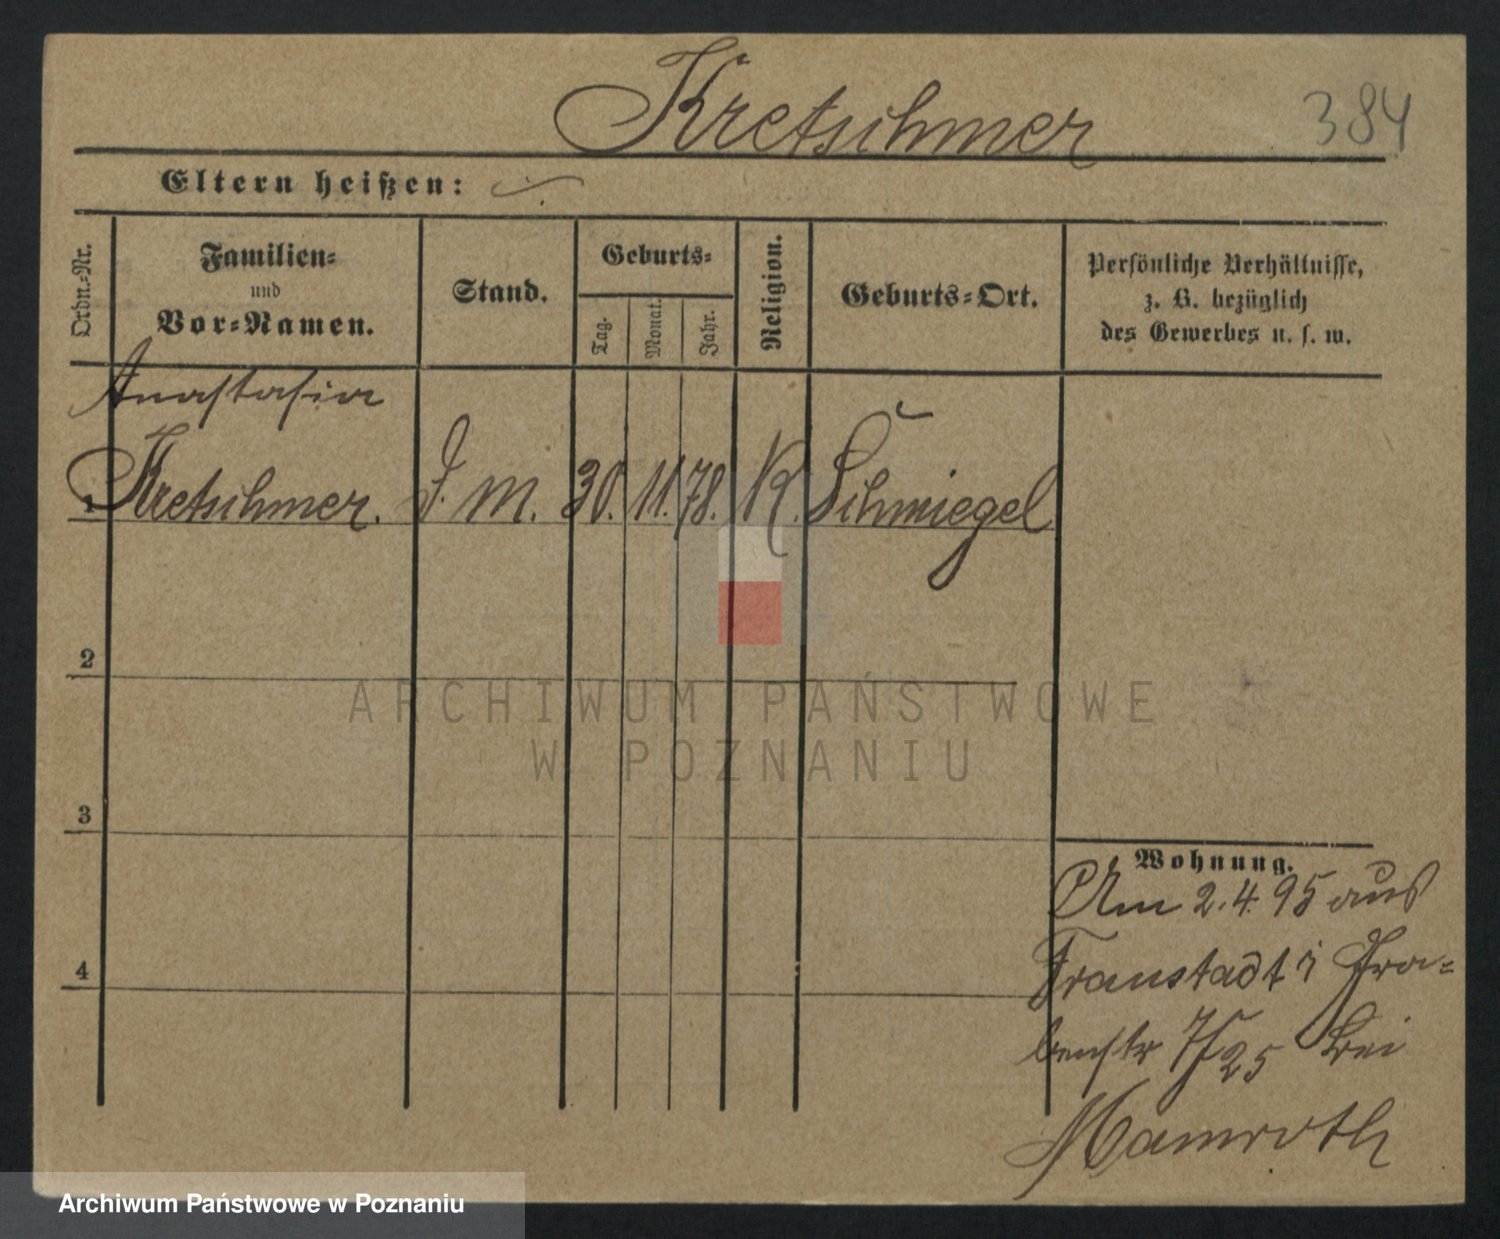 Kretschmer 384
Eltern heißen:
Ordn.-Nr.
Familien-
und
Vor-Namen.
Stand.
Geburts-
Tag.
Monat.
Jahr.
Religion.
Geburts-Ort.
Persönliche Verhältnisse,
z. B. bezüglich
des Gewerbes u. s. w.
Anastasia
1 Kretschmer. D. M. 30. 11. 78. K. Schmiegel
2
3
4
Wohnung.
Am 2.4.95 aus
Fraustadt Gra-
benstr 7/25 bei
Mamroth
ARCHIWUM PAŃSTWOWE
W POZNANIU
Archiwum Państwowe w Poznaniu